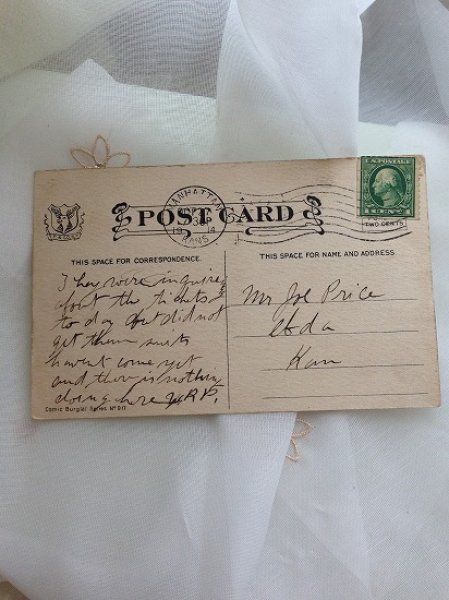 MANHATTAN
1914
KANS.
U.S. POSTAGE
POST CARD
TWO CENTS
THIS SPACE FOR CORRESPONDENCE.
THIS SPACE FOR NAME AND ADDRESS
They were inquireing
about the tickets
to day but did not
get them suits
havent come yet
and there is nothing
doing here
Mr Joe Price
Kan
Comic Burglar Series No 917